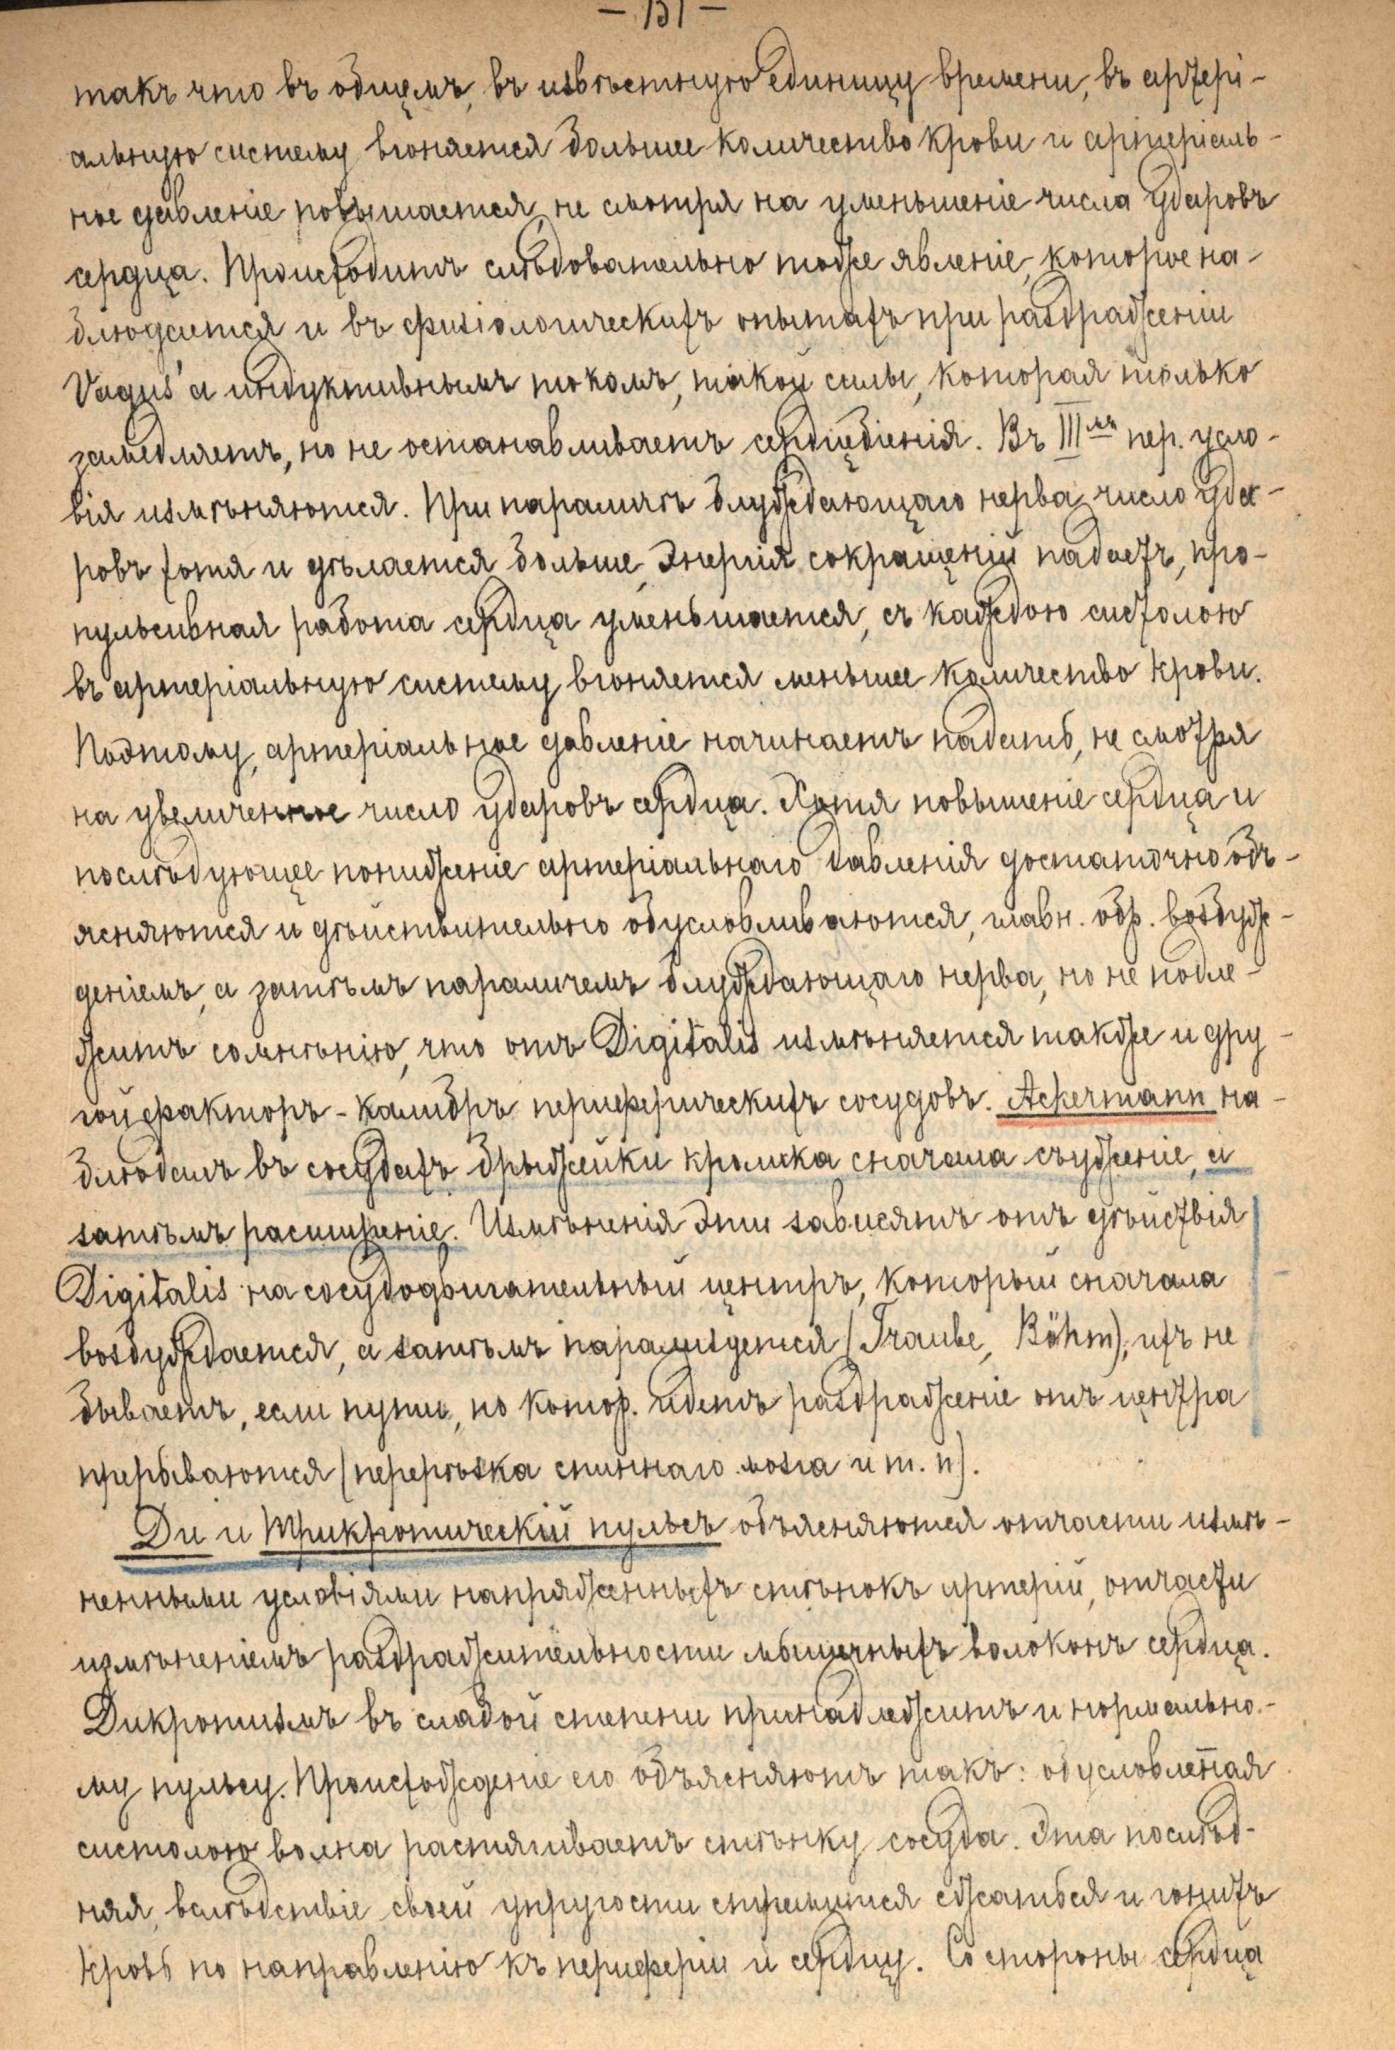 — 151 —
такъ что въ общемъ, въ извѣстную единицу времени, въ артері-
альную систему вгоняется большее количество крови и артеріаль-
ное давленіе повышается, не смотря на уменьшеніе числа ударовъ
сердца. Происходитъ слѣдовательно тоже явленіе, которое на-
блюдается и въ физіологическихъ опытахъ при раздраженіи
Vagus'а индуктивнымъ токомъ, такой силы, которая только
замедляетъ, но не останавливаетъ сердцебіенія. Въ IIIмъ пер. усло-
вія измѣняются. При параличѣ блуждающаго нерва, число уда-
ровъ хотя и дѣлается больше, энергія сокращеній падаетъ, про-
пульсивная работа сердца уменьшается, съ каждою систолою
въ артеріальную систему вгоняется меньшее количество крови.
Поэтому, артеріальное давленіе начинаетъ падать, не смотря
на увеличенное число ударовъ сердца. Хотя повышеніе сердца и
послѣдующее пониженіе артеріальнаго давленія достаточно объ-
ясняются и дѣйствительно обусловливаются, главн. обр. возбуж-
деніемъ, а затѣмъ параличемъ блуждающаго нерва, но не подле-
житъ сомнѣнію, что отъ Digitalis измѣняется также и дру-
гой факторъ - калибръ периферическихъ сосудовъ. Ackermann на-
блюдалъ въ сосудахъ брыжейки кролика сначала съуженіе, а
затѣмъ расширеніе. Измѣненія эти зависятъ отъ дѣйствія
Digitalis на сосудодвигательный центръ, который сначала
возбуждается, а затѣмъ парализуется (Traube, Böhm); ихъ не
бываетъ, если пути, по котор. идетъ раздраженіе отъ центра
прерываются (перерѣзка спиннаго мозга и т. п).
Ди и трикротическій пульсъ объясняются отчасти измѣ-
ненными условіями напряженныхъ стѣнокъ артерій, отчасти
измѣненіемъ раздражительности мышечныхъ волоконъ сердца.
Дикротизмъ въ слабой степени принадлежитъ и нормально-
му пульсу. Происхожденіе его объясняютъ такъ: обусловленая
систолою волна растягиваетъ стѣнку сосуда. Эта послѣд-
няя, вслѣдствіе своей упругости стремится сжаться и гонитъ
кровь по направленію къ периферіи и сердцу. Со стороны сердца